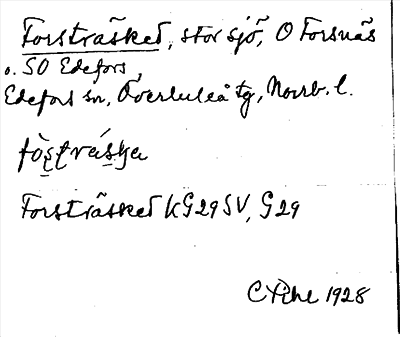 Forsträsket, stor sjö, O Forsnäs
o. SO Edefors,
Edefors sn, Överluleå tg, Norrb. l.
Forsträsket KG29SV, G29
1928